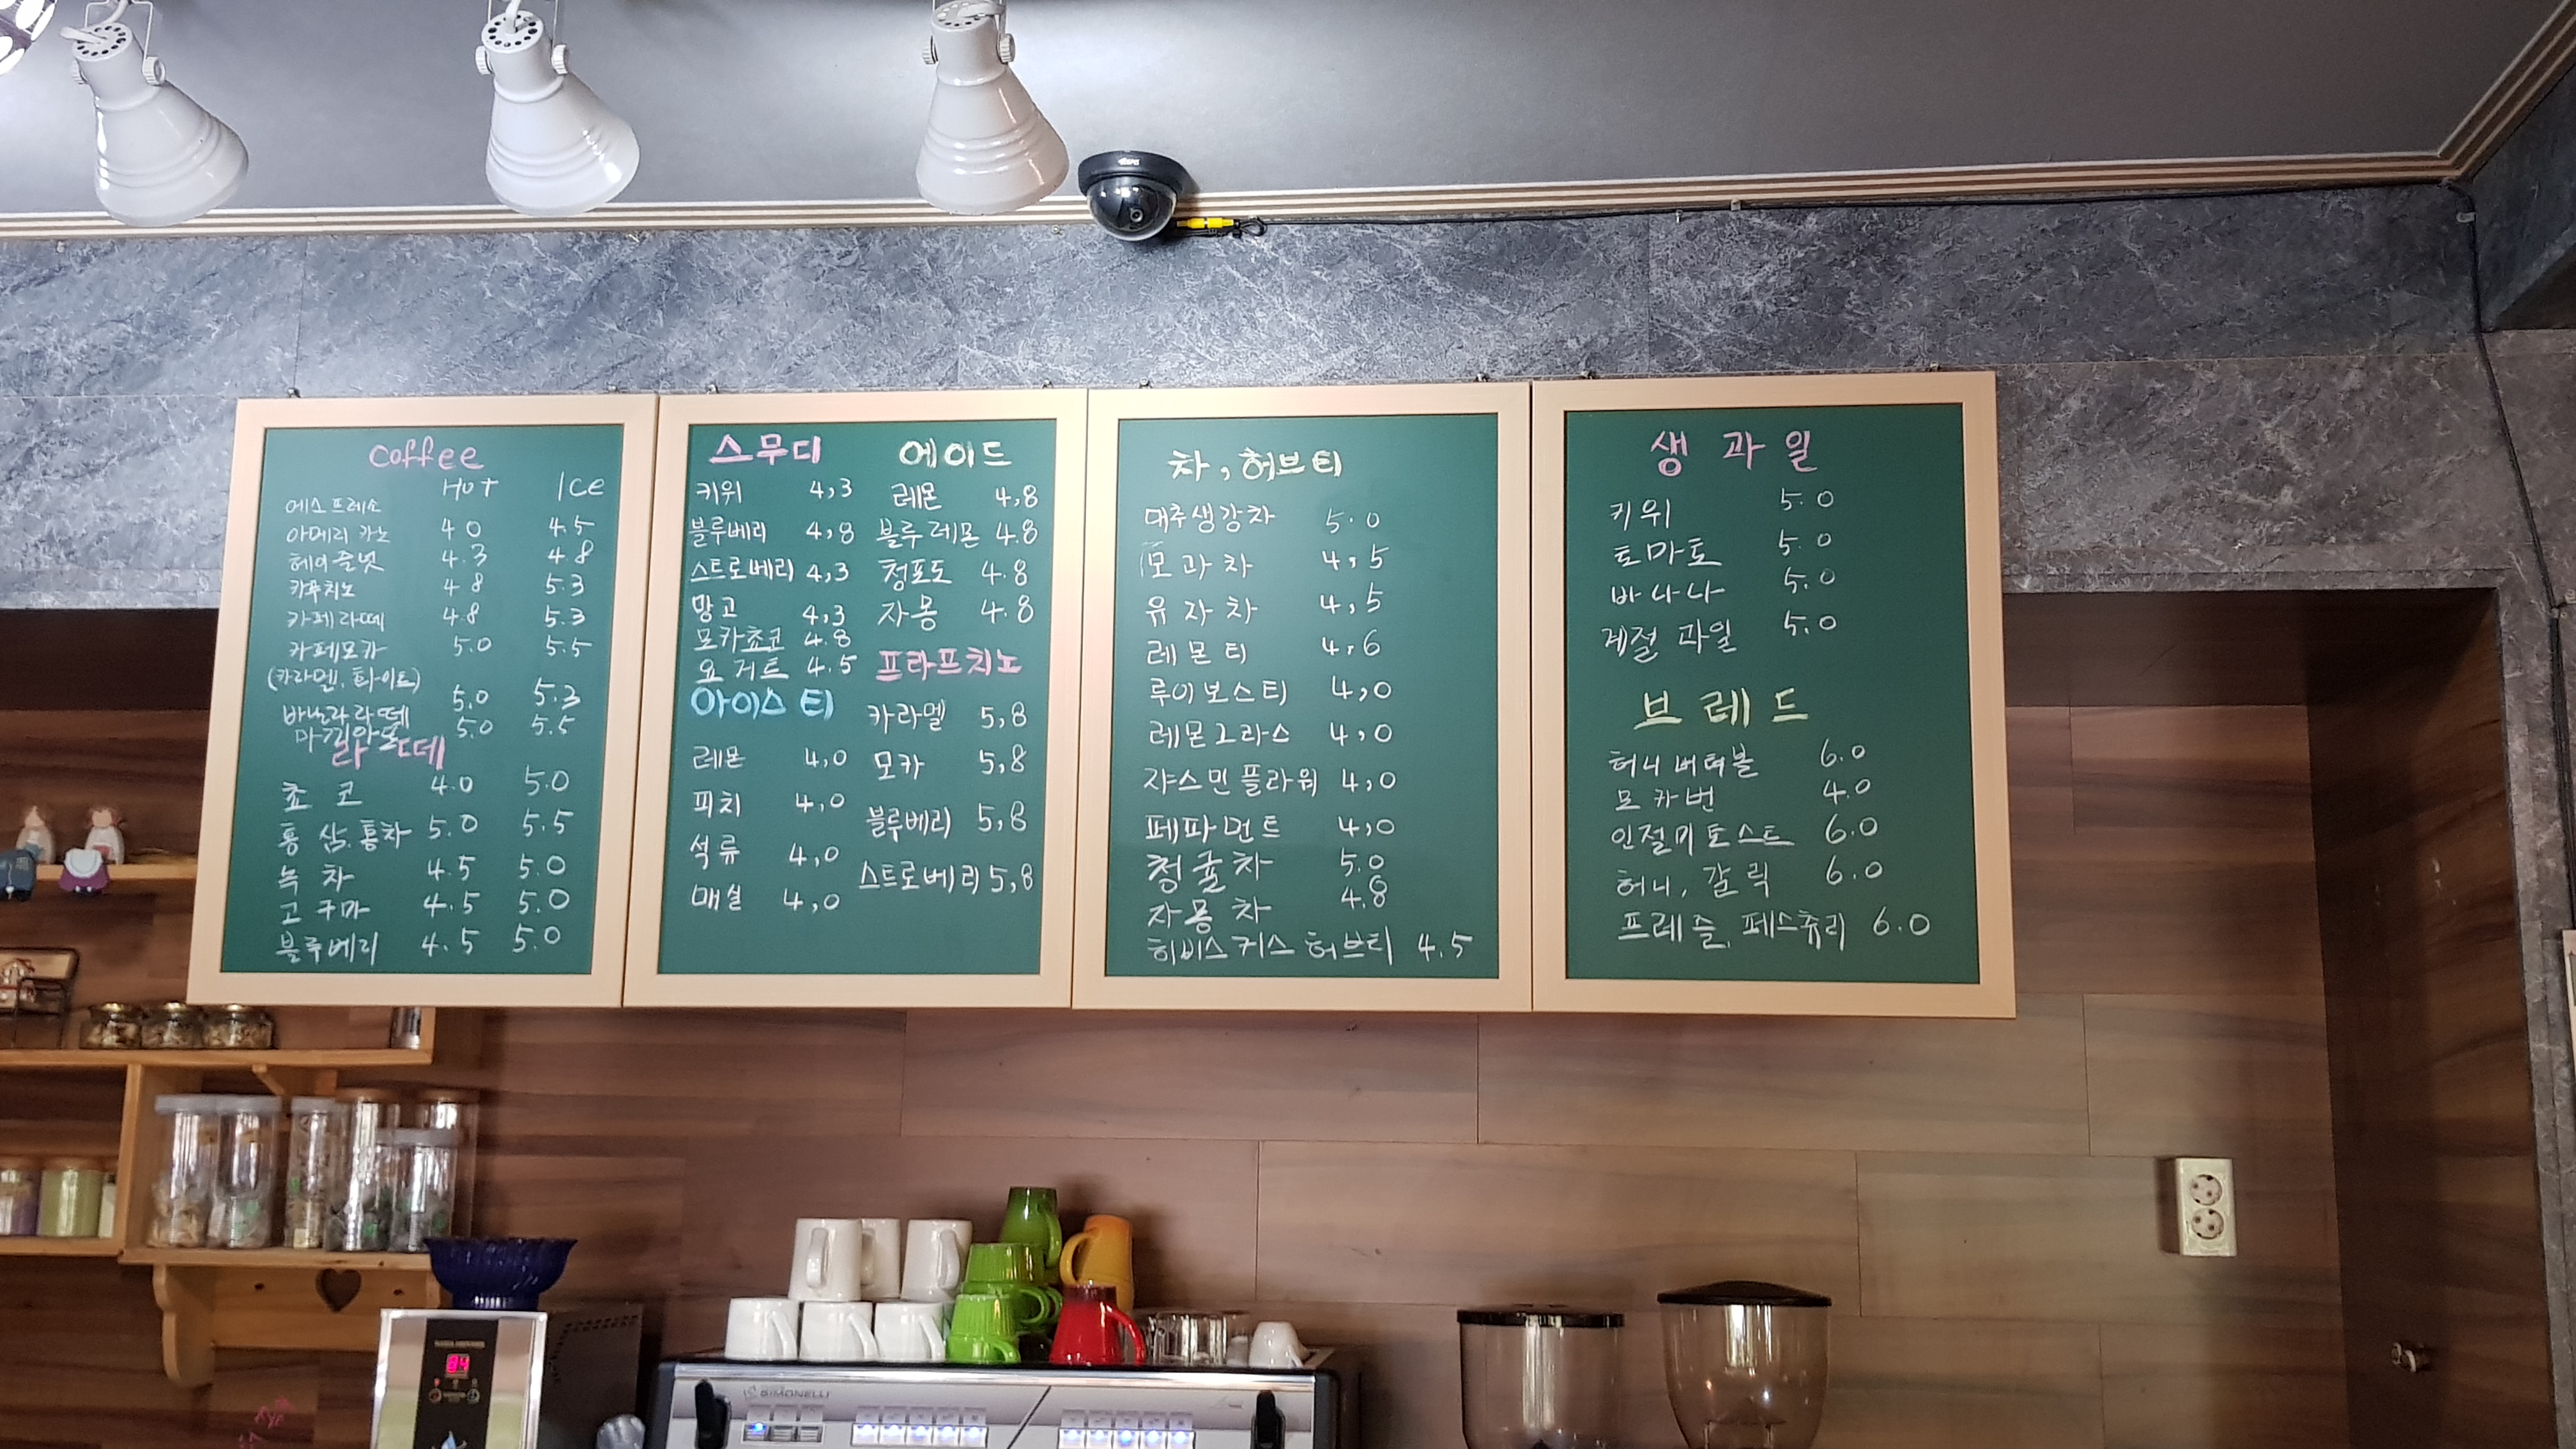 Coffee
Hot Ice
에스프레소
아메리카노 4.0 4.5
헤이즐넛 4.3 4.8
카푸치노 4.8 5.3
카페라떼 4.8 5.3
카페모카 5.0 5.5
(카라멜, 화이트)
바닐라라떼 5.0 5.3
마끼아또 5.0 5.5
라떼
쵸코 4.0 5.0
홍삼, 홍차 5.0 5.5
녹차 4.5 5.0
고구마 4.5 5.0
블루베리 4.5 5.0
스무디
키위 4,3
블루베리 4,8
스트로베리 4,3
망고 4,3
모카쵸코 4.8
요거트 4.5
아이스티
레몬 4,0
피치 4,0
석류 4,0
매실 4,0
에이드
레몬 4,8
블루레몬 4.8
청포도 4.8
자몽 4.8
프라프치노
카라멜 5,8
모카 5,8
블루베리 5,8
스트로베리 5,8
차, 허브티
대추생강차 5.0
모과차 4,5
유자차 4,5
레몬티 4,6
루이보스티 4,0
레몬그라스 4,0
쟈스민플라워 4,0
페파먼트 4,0
청귤차 5.0
자몽차 4.8
히비스커스 허브티 4.5
생과일
키위 5.0
토마토 5.0
바나나 5.0
계절과일 5.0
브레드
허니버터볼 6.0
모카번 4.0
인절미토스트 6.0
허니, 갈릭 6.0
프레즐, 페스츄리 6.0
SIMONELLI